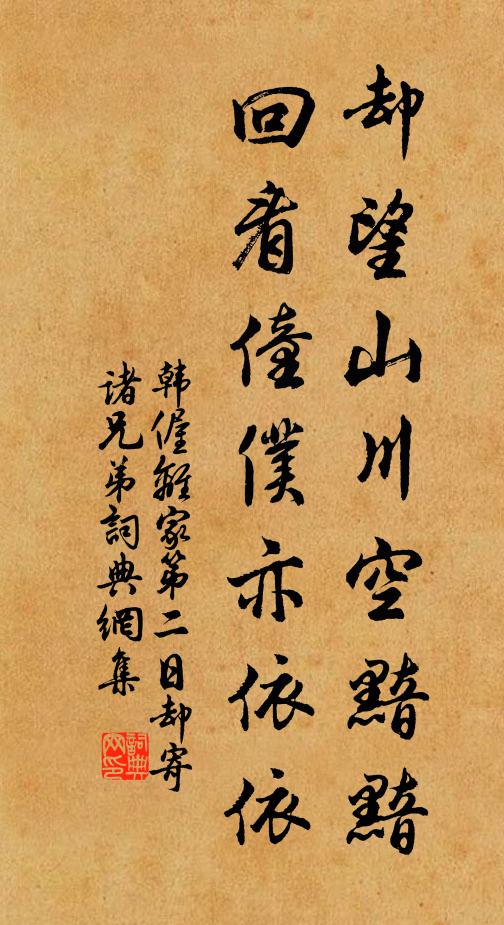 却望山川空黯黯
回看僮僕亦依依
韩偓離家第二日却寄
诸兄弟詞典網集
詞典網印